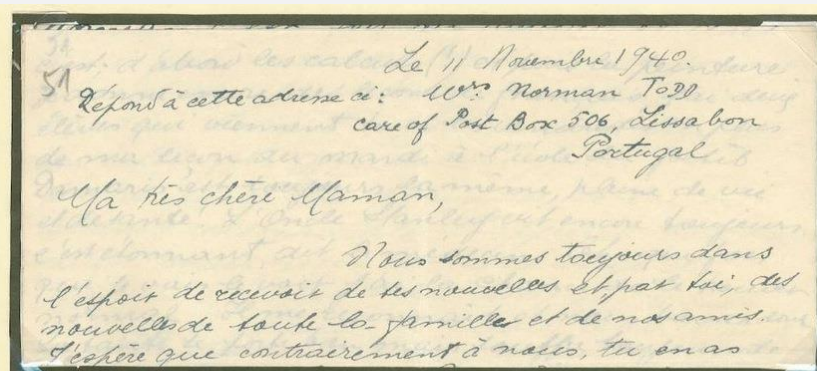 51
Le 11 Novembre 1940.
Repond à cette adresse ci: Mrs Norman TODD
care of Post Box 506, Lissabon
Portugal
Ma très chère Maman,
Nous sommes toujours dans
l'espoir de recevoir de tes nouvelles et, par toi, des
nouvelles de toute la famille et de nos amis.
J'espère que contrairement à nous, tu en as